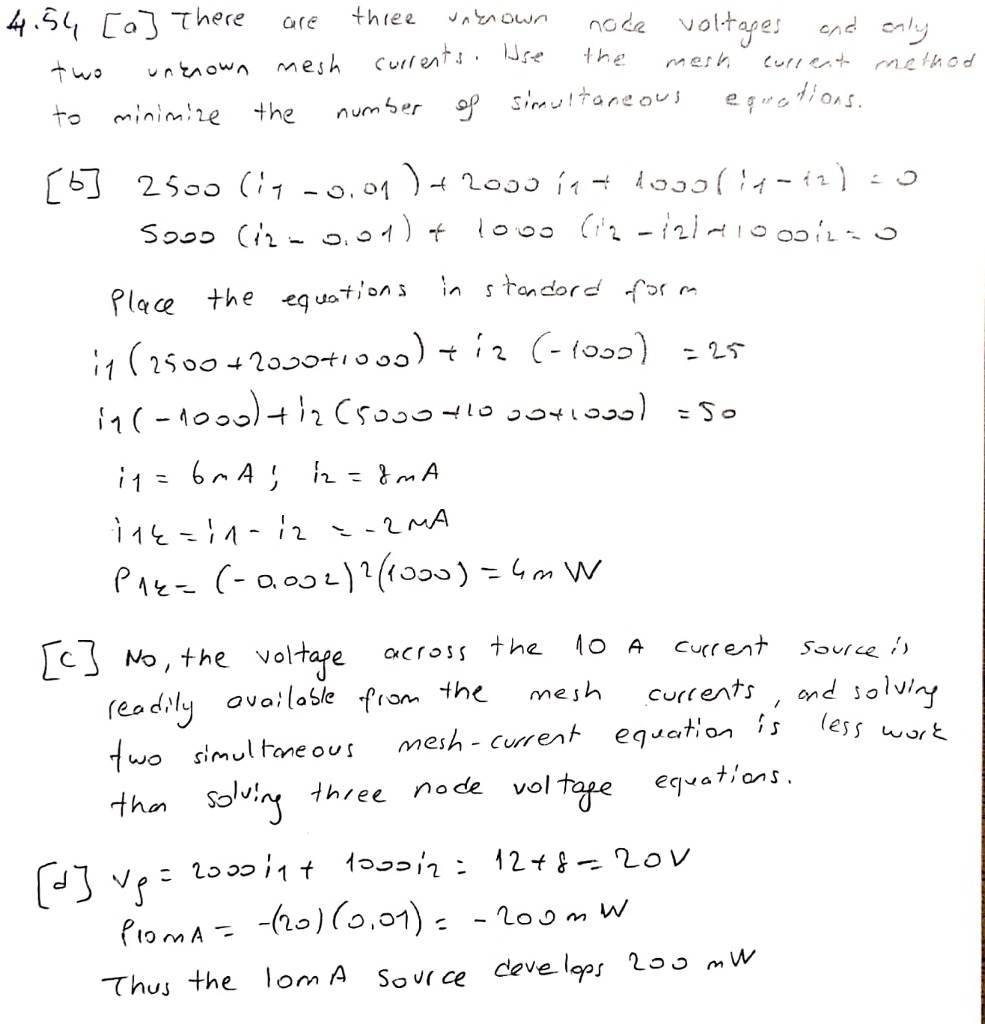 4.54 [a] There are three unknown node voltages and only
two unknown mesh currents. Use the mesh current method
to minimize the number of simultaneous equations.
[b] 2500 (i1 - 0.01) + 2000 i1 + 1000 (i1 - i2) = 0
5000 (i2 - 0.01) + 1000 (i2 - i2) + 1000 i2 = 0
Place the equations in standard form
i1 (2500 + 2000 + 1000) + i2 (-1000) = 25
i1 (-1000) + i2 (5000 + 1000 + 1000) = 50
i1 = 6mA ; i2 = 8mA
i1k = i1 - i2 = -2mA
P1k = (-0.002)2 (1000) = 4mW
[c] No, the voltage across the 10 A current source is
readily available from the mesh currents, and solving
two simultaneous mesh-current equation is less work
than solving three node voltage equations.
[d] Vg = 2000 i1 + 1000 i2 = 12 + 8 = 20V
P10mA = -(20)(0.01) = -200mW
Thus the 10mA source develops 200 mW